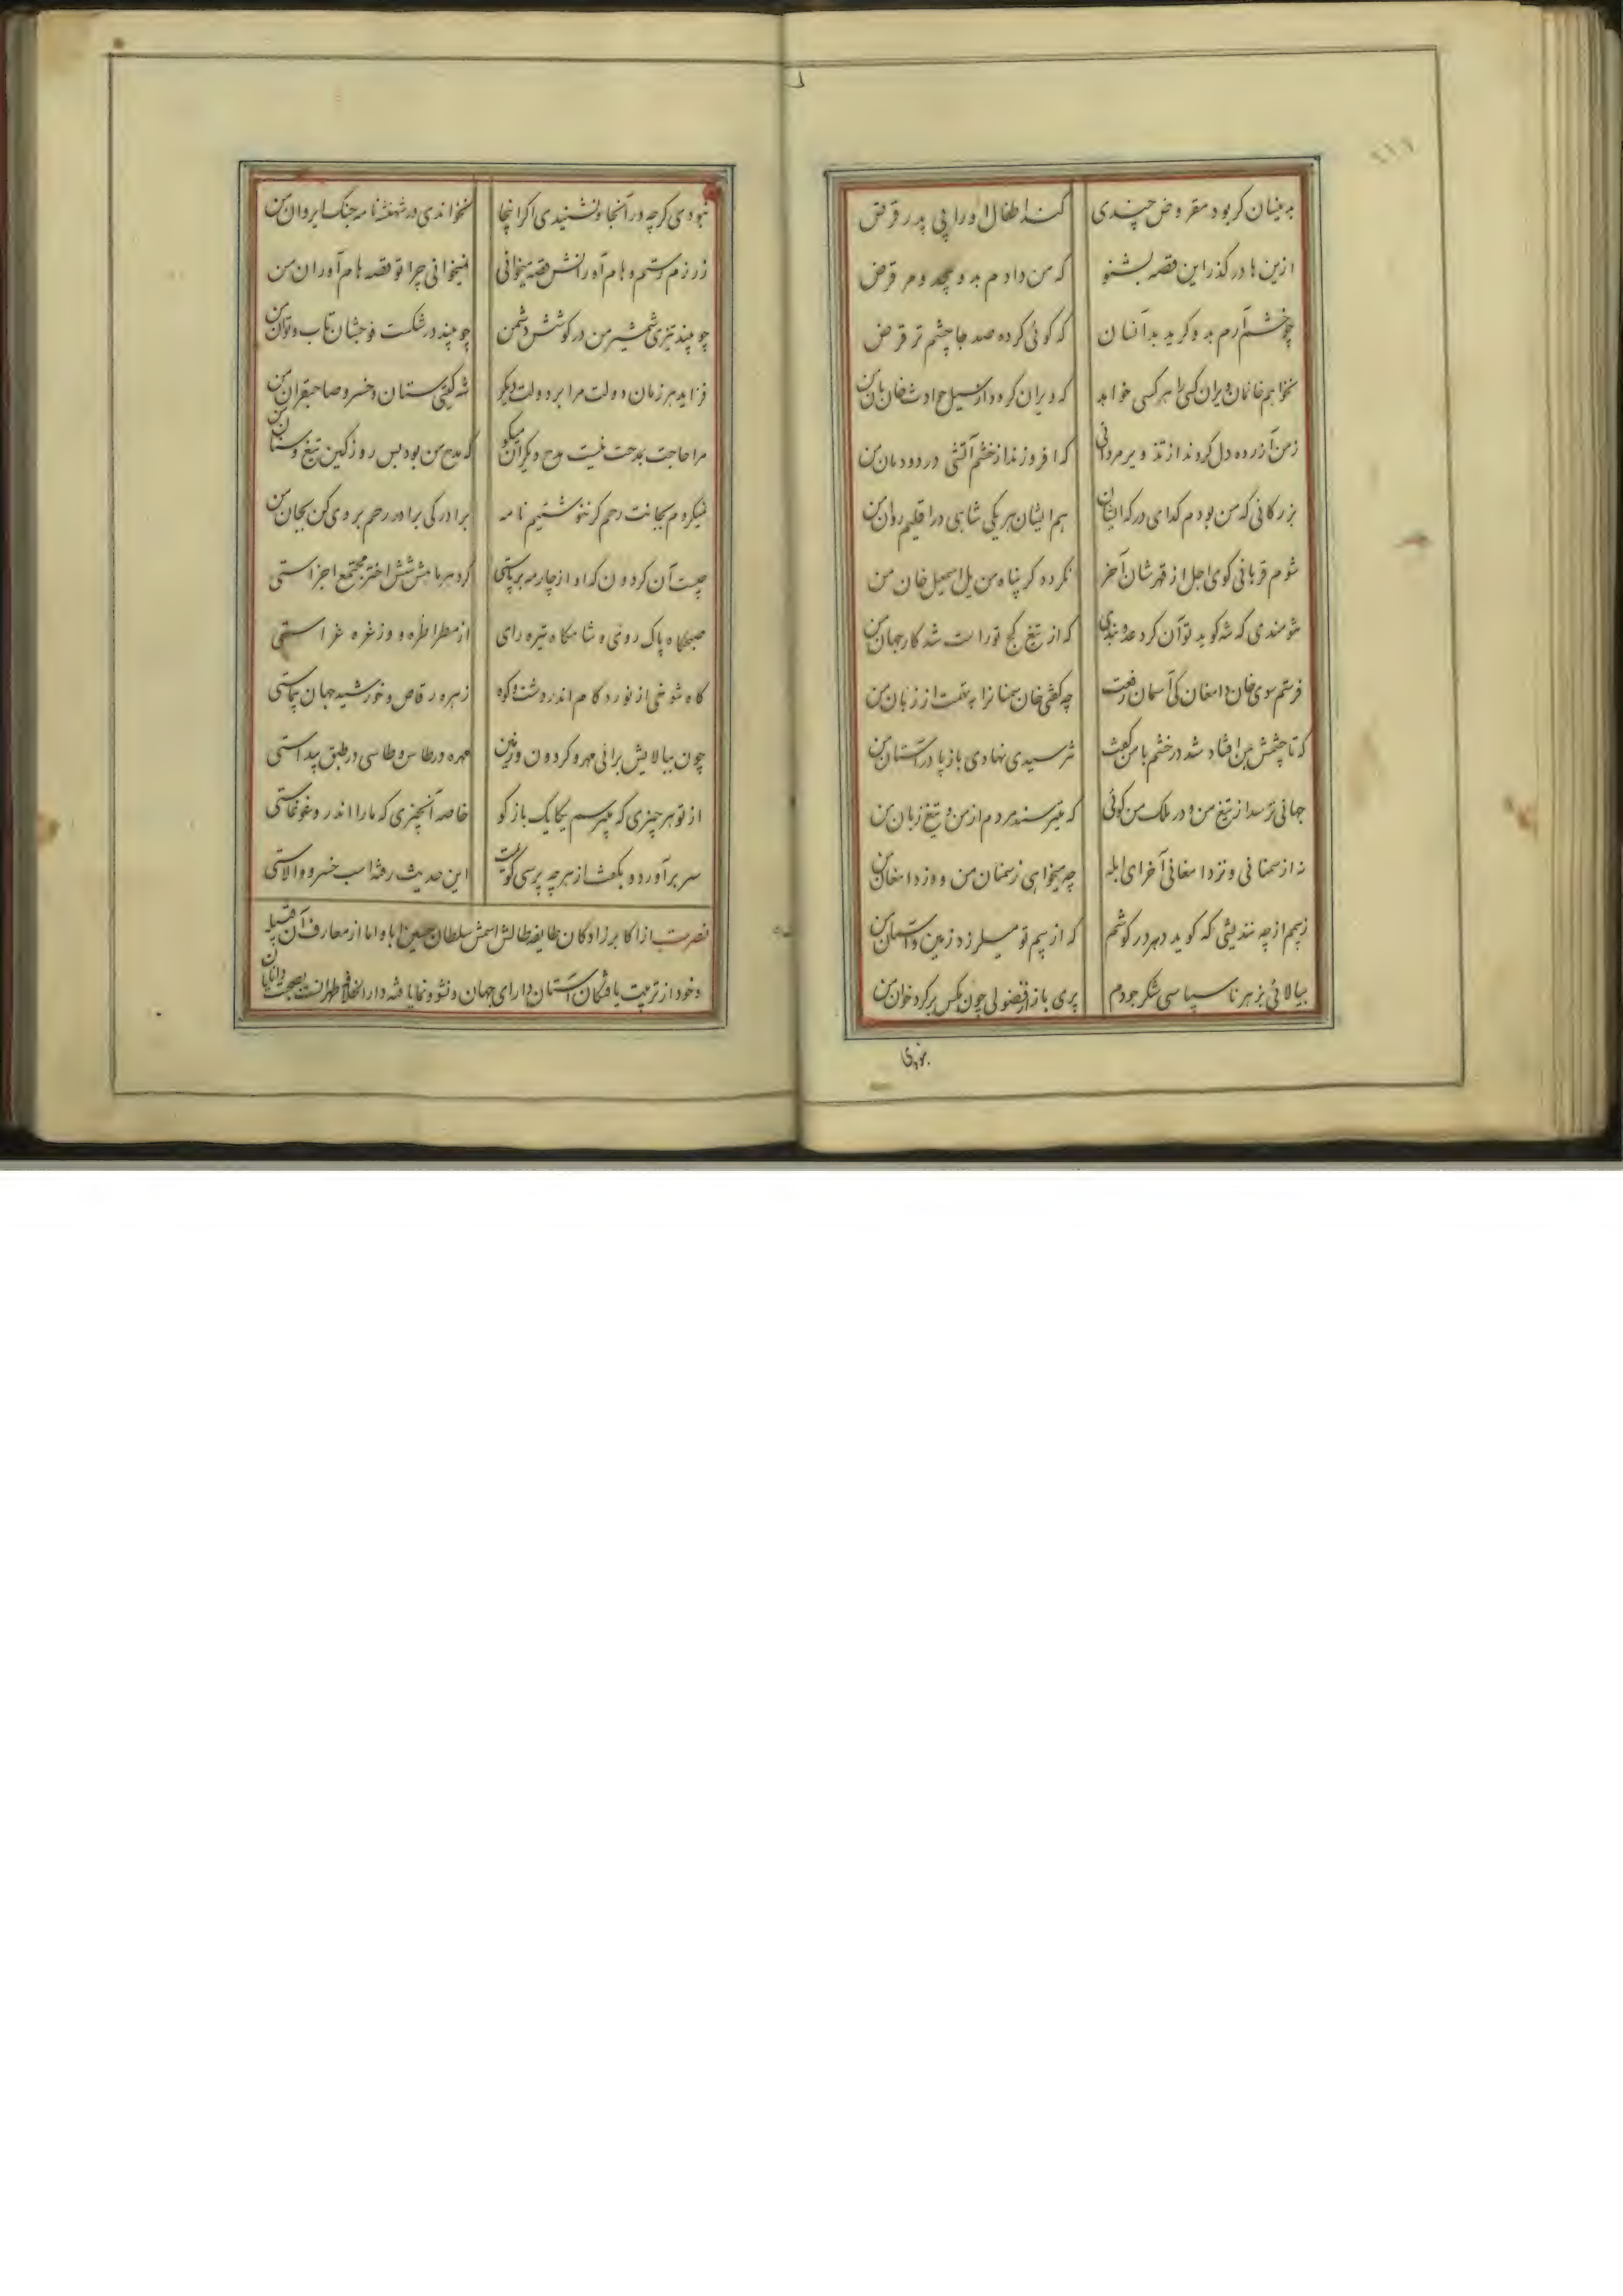 بدینسان کر بود مقروض چندی کنند اطفال او را پی پدر قرض
ازین ها در گذر این قصه بشنو که من دادم بد و هر قرض
چو خشم آرم بد و گرید بدآنسان که گوئی کرده صد جا چشم تر قرض
نخواهم خانمان ویران کسی را هر کسی خواهد که ویران گردد از سیل حوادث خان مان من
ز من آزرده دل کردند از تذویر مردانی که افروزند از خشم آتشی در دودمان من
بزرگانی که من بودم گدای درگه ایشان هم ایشان هر یکی شاهی در اقلیم روان من
شوم قربانی کوی اجل از قهرشان آخر نگردد گر پناه من یل اسمعیل خان من
که از تیغ کج تو راست شد کار جهان من
فرستم سوی خان دامغان کی آسمان رفعت چه گفتی خان سمنانرا
که تا چشمش بمن افتاد شد در خشم با من گفت نترسیدی نهادی باز پا در آستان من
جهانی ترسد از تیغ من و در ملک من گوئی که میترسند مردم از من و تیغ زبان من
نه از سمنانی و نزدامغانی آخر ای ابله چه میخواهی ز سمنان من و وز دامغان من
ز بیم از چه نندیشی که گوید دهر در گوشم که از بیم تو میلرزد زمین و آسمان من
بیالائی بزهر ناسپاسی شکر جودم پری باز از فضولی چون مگس بر گرد خوان من
نبودی گرچه در آنجا و نشنیدی اگر اینجا نخواندی در شهنشه نامه جنگ ایروان من
ز رزم رستم و هام آورانش قصه میخوانی نمیخوانی چرا تو قصه هام آوران من
چو بیند تیزی شمشیر من در کوشش دشمن چو بیند در شکست فوجشان تاب و توان من
فزاید هر زمان دولت مرا بر دولت دیگر شه گیتی ستان و خسرو صاحبقران من
مرا حاجت بمدحت نیست مدح دیگران میگو که مدح من بود بس روز کین تیغ و سنان من
نمیکردم بجانت رحم گر ننوشتیم نامه برادر کی برادر رحم بر وی کن بجان من
چیست آن گردون که او از چار مه برپاستی گرد هر ماهش شش اختر مجتمع اجزاستی
صبحگاه پاک روی و شامگاه تیره رای از مطرا طره و وز غره غراستی
گاه شوخی از نورد گام اندر دشت و کوه زهره رقاص و خورشید جهان پیماستی
چون ببالایش برانی مهر و گردون و زمین مهره در طاس و طاسی در طبق پیداستی
از تو هر چیزی که میپرسم یکایک باز گو خاصه آنچیزی که ما را اندرو غوغاستی
سر برآورد و بگفت از هر چه پرسی گویمت این حدیث رفته اسب خسرو والاستی
نصرت از اکابر زادگان طایفه طالش اسمش سلطان حسین ابا و اما از معارف آن قبیله
و خود از تربیت یافتگان آستان دارای جهان و نشو و نمایافته دار الخلافه طهرانست بصحبت دانایان